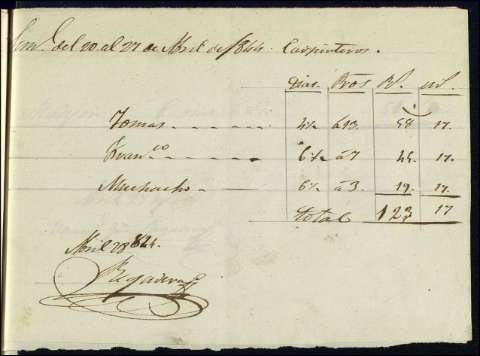 Sem.ª del 20 al 27 de Abril de 1844. Carpinteros.
dias. R.os R.s ml.
Tomas 4½ á 13. 58 17.
Fran.co 6½ á 7 45. 17.
Muchacho 6½ á 3. 19. 17.
total 123 17
Abril 28 1844.